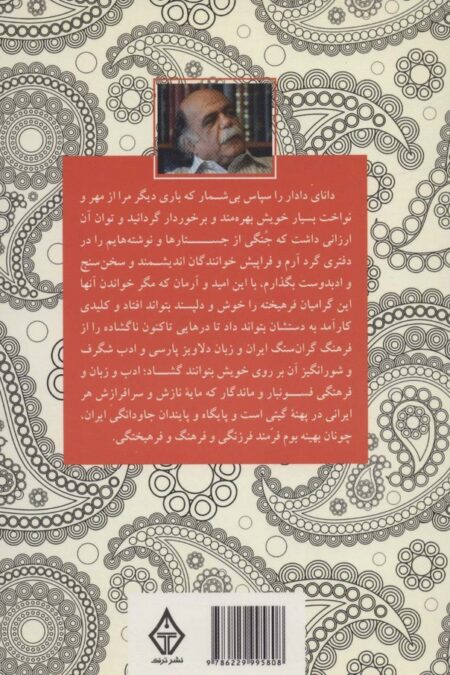 دانای دادار را سپاس بی‌شمار که باری دیگر مرا از مهر و
نواخت بسیار خویش بهره‌مند و برخوردار گردانید و توان آن
ارزانی داشت که جُنگی از جستارها و نوشته‌هایم را در
دفتری گرد آرم و فراپیش خوانندگان اندیشمند و سخن‌سنج
و ادبدوست بگذارم، با این امید و آرمان که مگر خواندن آنها
این گرامیان فرهیخته را خوش و دلپسند بتواند افتاد و کلیدی
کارآمد به دستشان بتواند داد تا درهایی تاکنون ناگشاده را از
فرهنگ گران‌سنگ ایران و زبان دلاویز پارسی و ادب شگرف
و شورانگیز آن بر روی خویش بتوانند گشاد؛ ادب و زبان و
فرهنگی فسونبار و ماندگار که مایهٔ نازش و سرافرازش هر
ایرانی در پهنهٔ گیتی است و پایگاه و پایندان جاودانگی ایران،
چونان بهینه بوم فرّمند فرزنگی و فرهنگ و فرهیختگی.
9 786229 995808
نشر ترنگ